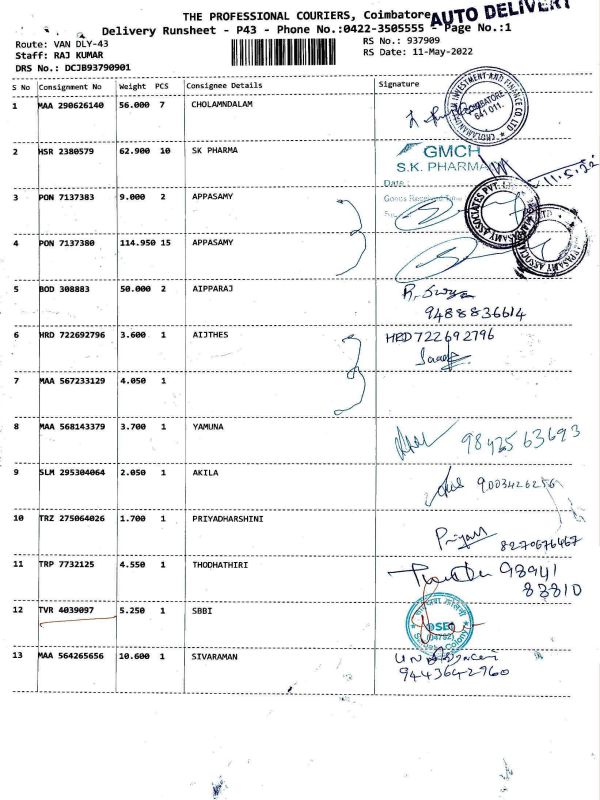 THE PROFESSIONAL COURIERS, Coimbatore
AUTO DELIVERY
Delivery Runsheet - P43 - Phone No.:0422-3505555 - Page No.:1
Route: VAN DLY-43
RS No.: 937909
Staff: RAJ KUMAR
RS Date: 11-May-2022
DRS No.: DCJB93790901
S No Consignment No Weight PCS Consignee Details Signature
1 MAA 290626140 56.000 7 CHOLAMNDALAM
COIMBATORE
641 011.
2 HSR 2380579 62.900 10 SK PHARMA
GMCH
S.K. PHARMA
Date :
11.5.22
3 PON 7137383 9.000 2 APPASAMY
4 PON 7137380 114.950 15 APPASAMY
5 BOD 308883 50.000 2 AIPPARAJ
R. Surya
9488836614
6 HRD 722692796 3.600 1 AIJTHES
HRD722692796
7 MAA 567233129 4.050 1
8 MAA 568143379 3.700 1 YAMUNA
9842563693
9 SLM 295304064 2.050 1 AKILA
9003426256
10 TRZ 275064026 1.700 1 PRIYADHARSHINI
8270676467
11 TRP 7732125 4.550 1 THODHATHIRI
98941
83810
12 TVR 4039097 5.250 1 SBBI
13 MAA 564265656 10.600 1 SIVARAMAN
9443642960